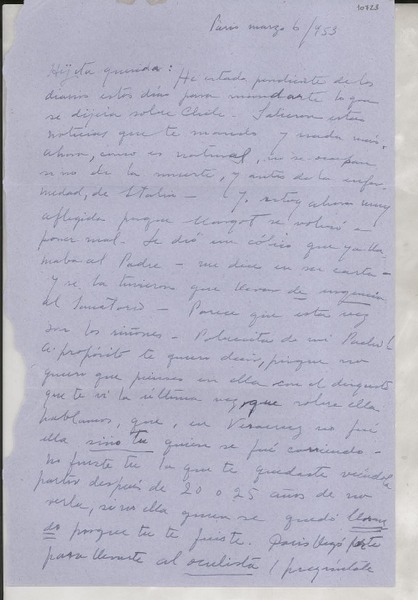 10723
París marzo 6/953
Hijita querida: He estado pendiente de los
diarios estos días para mandarte lo que
se dijera sobre Chile. Salieron estas
noticias que te mando y nada más.
Ahora, como es natural, no se ocupan
sino de la muerte, y antes de la enfer-
medad, de Stalin — Y estoy ahora muy
afligida porque Margot se volvió a
poner mal. Le dió un cólico que ya lla-
maba al Padre — me dice en su carta —
y se la tuvieron que llevar de urgencia
al Sanatorio — Parece que esta vez
son los riñones — Pobrecita de mi
A propósito te quiero decir, porque no
quiero que pienses en ella con el disgusto
que te vi la última vez, que sobre ella
hablamos, que, en Veracruz no fué
ella sino tu quien se fué corriendo —
no fuiste tu la que te quedaste viéndola
partir después de 20 o 25 años de no
verla, sino ella quien se quedó lloran
do porque tu te fuiste. Doris llegó
para llevarte al oculista (pregúntale